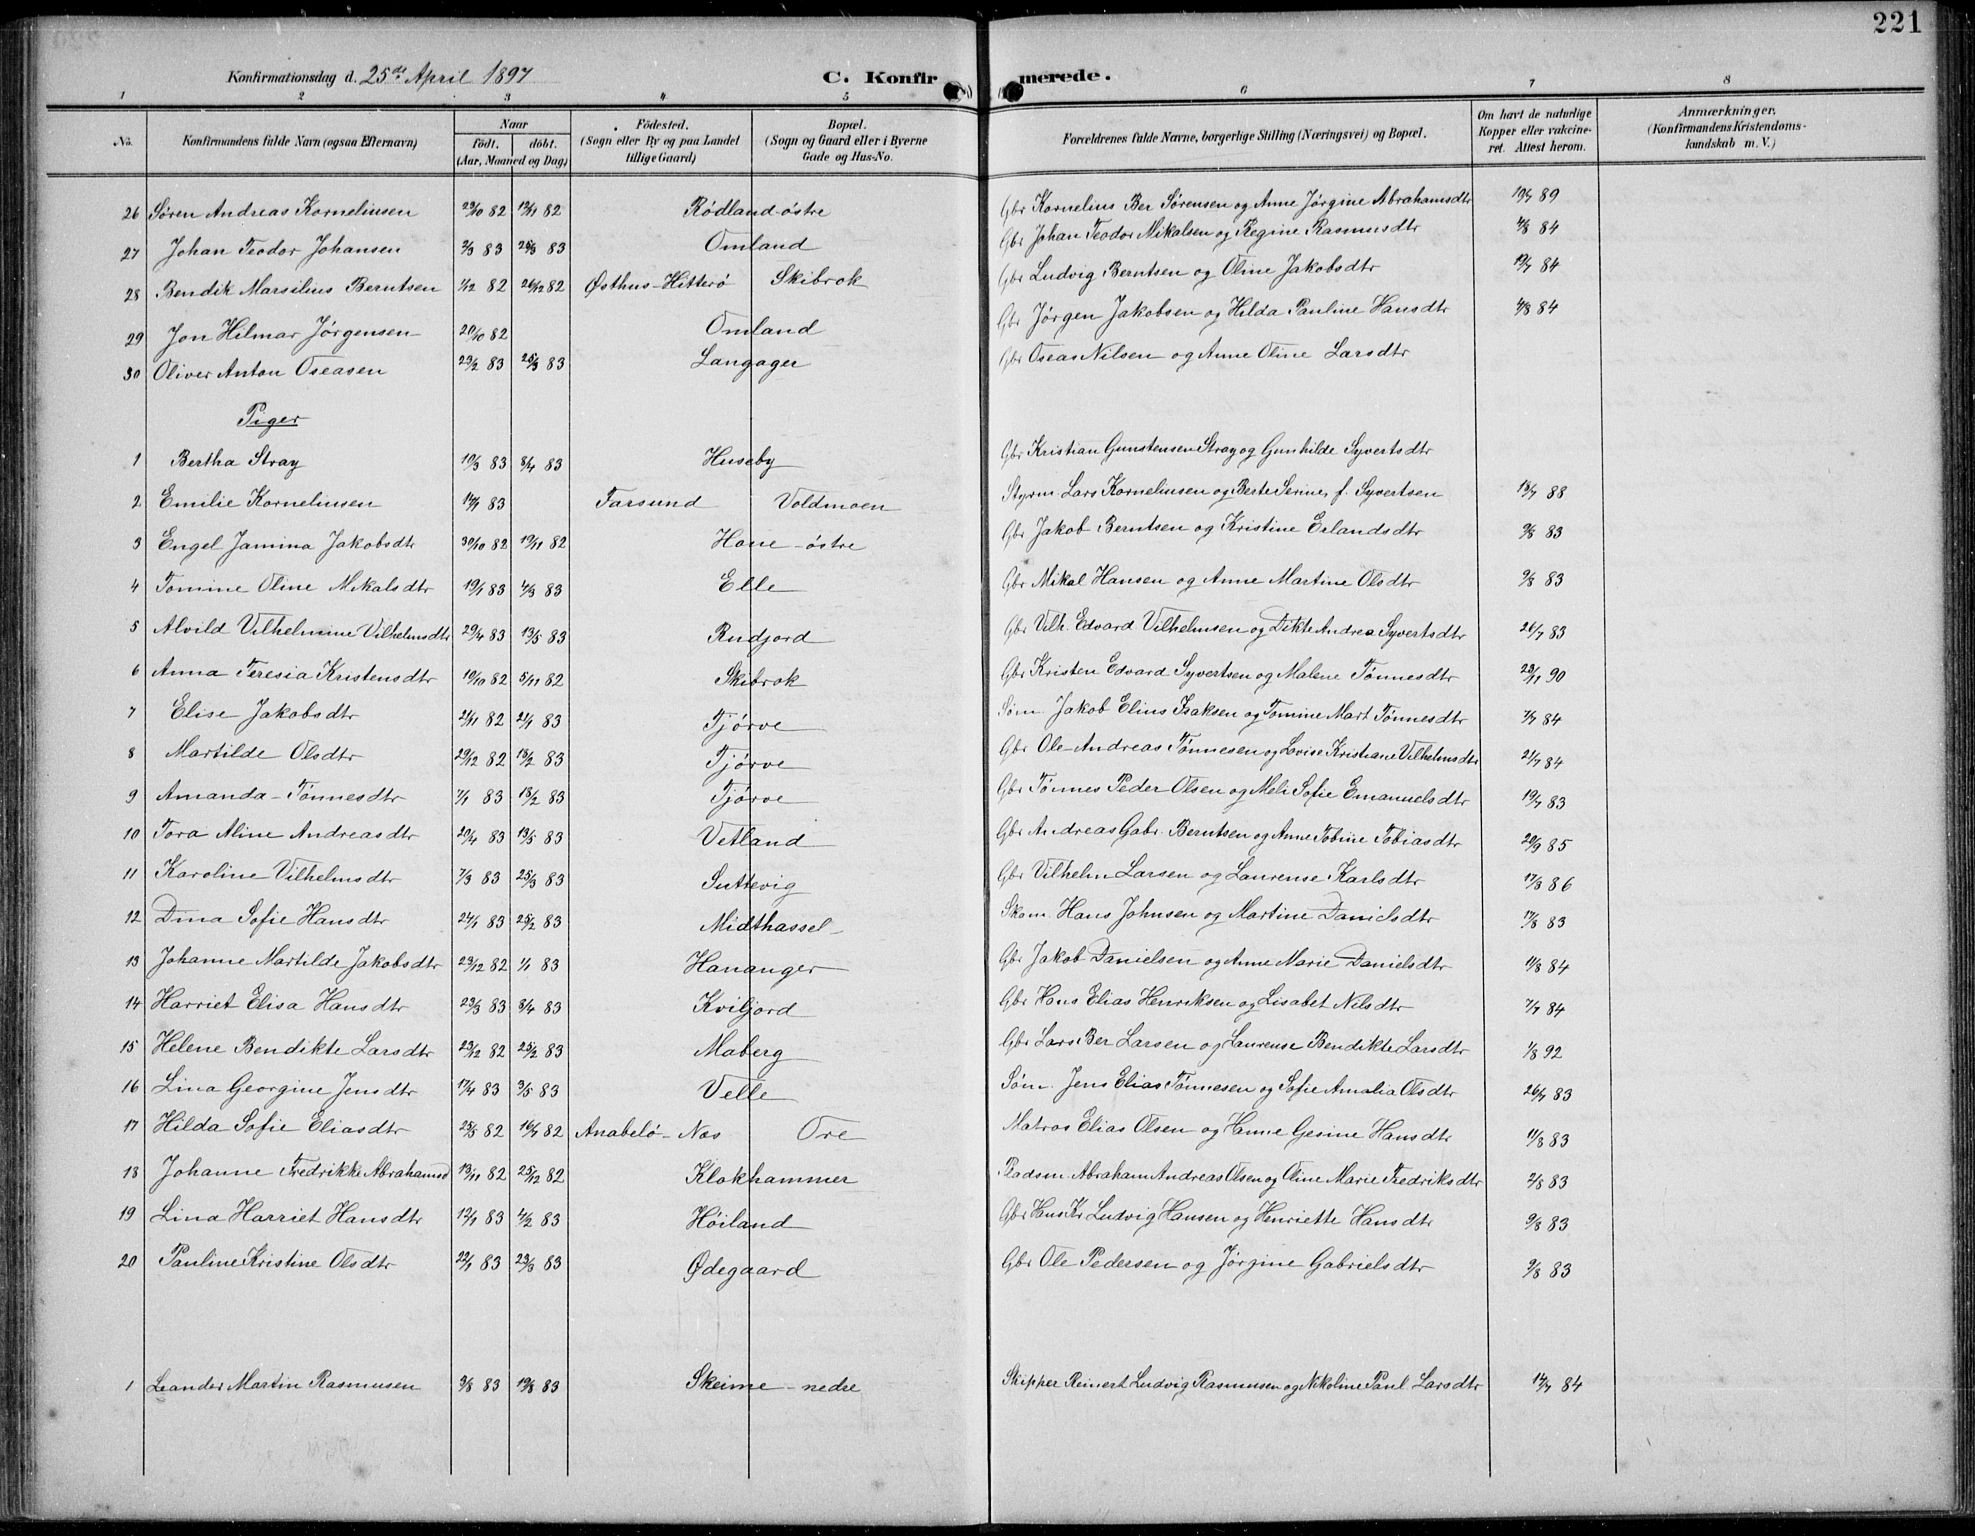 221
Konfirmationsdag d. 25de April 1897 C. Konfirmerede.
1 2 3 4 5 6 7 8
No. Konfirmandens fulde Navn (ogsaa Efternavn) Naar födt. döbt. (Aar, Maaned og Dag) Födested. (Sogn eller By og paa Landet tillige Gaard) Bopæl. (Sogn og Gaard eller i Byerne Gade og Hus-No. Forældrenes fulde Navne, borgerlige Stilling (Næringsvei) og Bopæl. Om havt de naturlige Kopper eller vakcineret. Attest herom. Anmærkninger. (Konfirmandens Kristendomskundskab m. V.)
26 Søren Andreas Korneliusen 29/10 82 19/11 82 Rödland östre Gbr Kornelius Ber Sørensen og Anne Jørgine Abrahamsdtr 19/7 89
27 Johan Teodor Johansen 2/3 83 25/3 83 Omland Gbr Johan Teodor Mikalsen og Regine Rasmusdtr 4/8 84
28 Bendik Marsilius Berntsen 1/12 82 26/12 82 Østhus-Hitterö Skibrok Gbr Ludvig Berntsen og Oline Jakobsdtr 19/7 84
29 Jon Hilmar Jørgensen 20/10 82 Omland Gbr Jørgen Jakobsen og Hilda Pauline Hansdtr 4/8 84
30 Oliver Anton Oseasen 23/2 83 25/3 83 Langager Gbr Oseas Nilsen og Anne Oline Larsdtr
Piger
1 Bertha Stray 10/3 83 8/4 83 Huseby Gbr Kristian Gunstensen Stray og Gunhilde Syvertsdtr
2 Emilie Korneliusen 83 Farsund Voldmoen Styrm Lars Korneliusen og Berte Serine, f. Syvertsen 13/7 88
3 Engel Jamina Jakobsdtr 30/10 82 19/11 82 Hane-östre Gbr Jakob Berntsen og Kristine Erlandsdtr 9/8 83
4 Tomine Oline Mikalsdtr 19/1 83 4/3 83 Elle Gbr Mikal Hansen og Anne Martine Olsdtr 9/8 83
5 Alvild Vilhelmine Vilhelmsdtr 29/4 83 13/5 83 Rudjord Gbr Vilh. Edvard Vilhelmsen og Dikte Andrea Syvertsdtr 26/7 83
6 Anna Teresia Kristensdtr 10/10 82 5/11 82 Skibrok Gbr Kristen Edvard Syvertsen og Malene Tønnesdtr 23/11 90
7 Elise Jakobsdtr 2/11 82 2/1 83 Tjörve Søm. Jakob Elius Isaksen og Tomine Mart Tønnesdtr 7/7 84
8 Martilde Olsdtr 29/12 82 13/2 83 Tjörve Gbr Ole Andreas Tønnesen og Lovise Kristiane Vilhelmsdtr 21/7 84
9 Amanda-Tönnesdtr 7/1 83 13/2 83 Tjörve Gbr Tønnes Peder Olsen og Meli Sofie Emanuelsdtr 19/7 83
10 Tora Aline Andreasdtr 20/4 83 13/5 83 Vetland Gbr Andreas Gabr. Berntsen og Anne Tobine Tobiasdtr 20/9 85
11 Karoline Vilhelmsdtr 7/3 83 25/3 83 Suttevig Gbr Vilhelm Larsen og Laurense Karlsdtr 17/3 86
12 Dina Sofie Hansdtr 24/1 83 25/2 83 Midthassel Skom. Hans Johnsen og Martine Danielsdtr 17/8 83
13 Johanne Martilde Jakobsdtr 23/12 82 1/1 83 Hananger Gbr Jakob Danielsen og Anne Marie Danielsdtr 11/8 84
14 Harriet Elisa Hansdtr 23/3 83 8/4 83 Kviljord Gbr Hans Elias Henriksen og Lisabet Nilsdtr 7/7 84
15 Helene Bendikte Larsdtr 23/12 82 25/2 83 Maberg Gbr Lars Ber Larsen og Laurense Bendikte Larsdtr 1/8 92
16 Lina Georgine Jensdtr 17/4 83 3/5 83 Velle Søm. Jens Elias Tønnesen og Sofie Amalia Olsdtr 26/7 83
17 Hilda Sofie Eliasdtr 25/5 82 16/7 82 Anabelö-Næs Ore Matros Elias Olsen og Hanne Gesine Hansdtr 11/8 83
18 Johanne Fredrikke Abrahamsd 13/11 82 25/12 82 Klokhammer Pladsm. Abraham Andreas Olsen og Oline Marie Fredriksdtr 2/8 83
19 Lina Harriet Hansdtr 12/1 83 4/2 83 Höiland Gbr Hans Kr Ludvig Hansen og Henriette Hansdtr 9/8 83
20 Pauline Kristine Olsdtr 22/1 83 23/3 83 Ødegaard Gbr Ole Pedersen og Jörgine Gabrielsdtr 9/8 83
1 Leander Martin Rasmusen 3/8 83 19/8 83 Skeime-nedre Skipper Reinert Ludvig Rasmusen og Nikoline Paul. Larsdtr 14/7 84